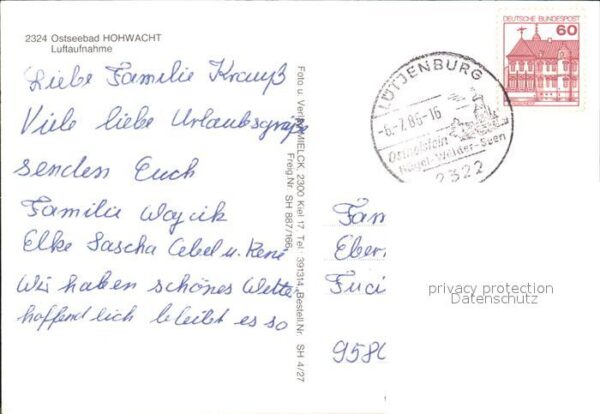 2324 Ostseebad HOHWACHT
Luftaufnahme
Liebe Familie Krauß
Viele liebe Urlaubsgrüße
senden Euch
Familie Wojcik
Elke Sascha Cebel u. René
Wir haben schönes Wetter
hoffendlich bleibt es so
Foto u. Verlag MIELCK, 2300 Kiel 17, Tel. 391314, Bestell.Nr. SH 4/27
Freig.Nr. SH 887/166
DEUTSCHE BUNDESPOST
60
LÜTJENBURG
-6.7.86-16
Ostholstein
Hügel-Wälder-Seen
2322
Fam
Eber
9580
privacy protection
Datenschutz